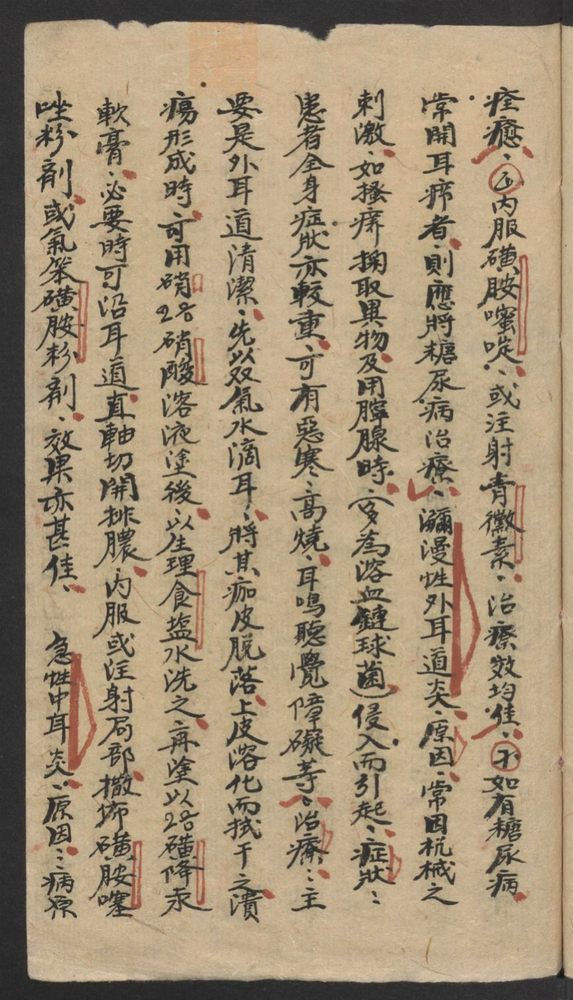 痊癒、㊣內服磺胺嘧啶、或注射青黴素、治療效均佳、㊉如有糖尿病
常開耳癤者、則應將糖尿病治療、瀰漫性外耳道炎、原因、常因机械之
刺激、如搔癢掏取異物及用膣腺時、(多為溶血鏈球菌)侵入而引起、症狀:
患者全身症狀亦較重、可有惡寒、高燒、耳鳴聽覺障礙等、治療:主
要是外耳道清潔、先以双氧水滴耳、將其痂皮脫落上皮溶化而拭干之潰
瘍形成時、可用硝2%硝酸溶液塗後、以生理食盐水洗之、再塗以2%磺降汞
軟膏、必要時可沿耳道直軸切開排膿、內服或注射局部、撒怖磺胺噻
唑粉劑、或氣笨磺胺粉劑、效果亦甚佳、 急性中耳炎、原因:病原